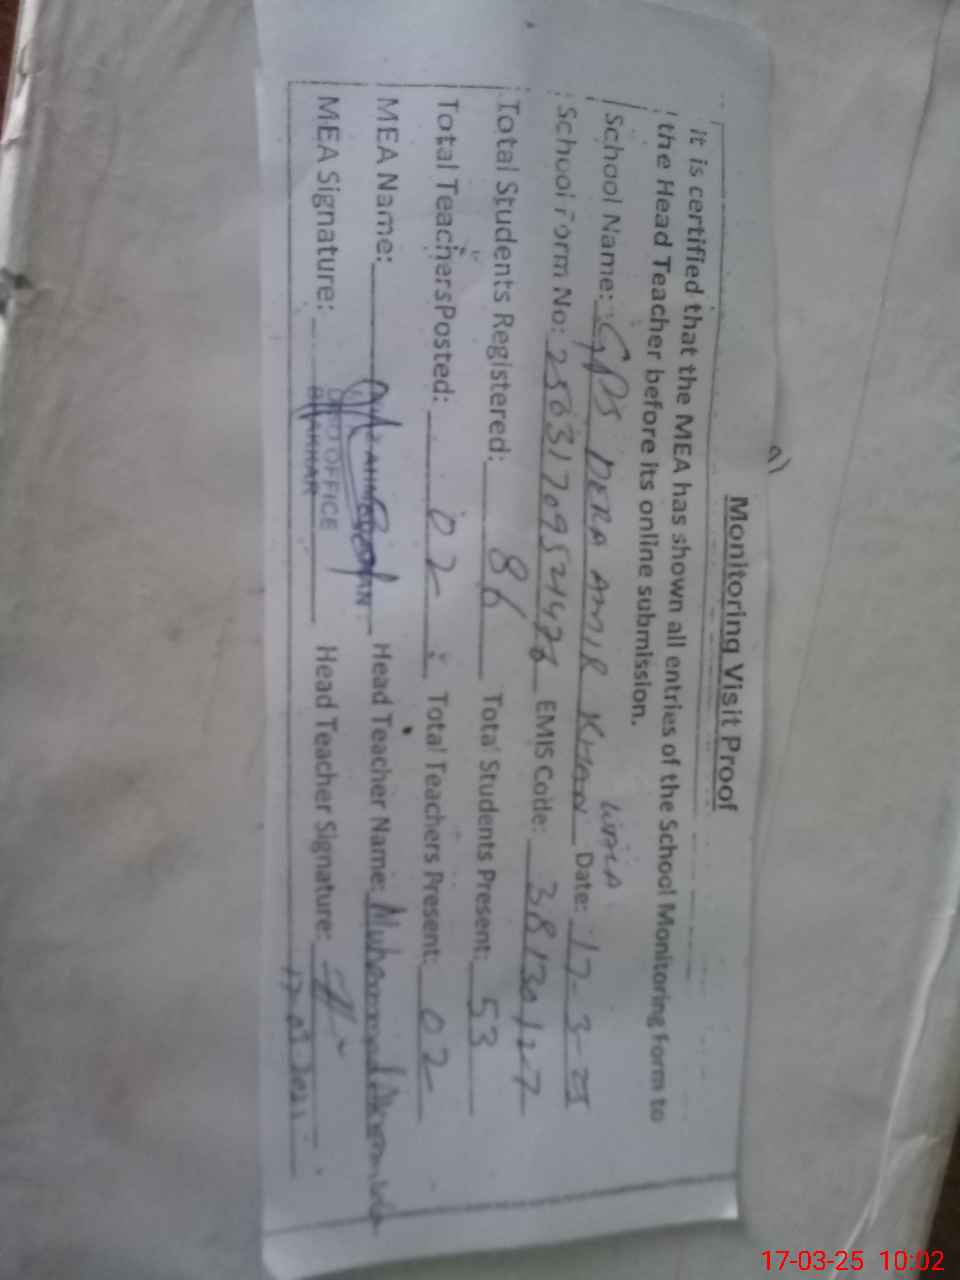 a)
Monitoring Visit Proof
it is certified that the MEA has shown all entries of the School Monitoring Form to
the Head Teacher before its online submission.
School Name: GPS DERA AMIR KHAN Date: 17-3-25
School Form No: EMIS Code: 38130127
Total Students Registered: 86 Total Students Present: 53
Total Teachers Posted: 02 Total Teachers Present: 02
MEA Name: Head Teacher Name: Muhammad
MEA Signature: OFFICE BHAKKAR Head Teacher Signature:
17-03-25 10:02